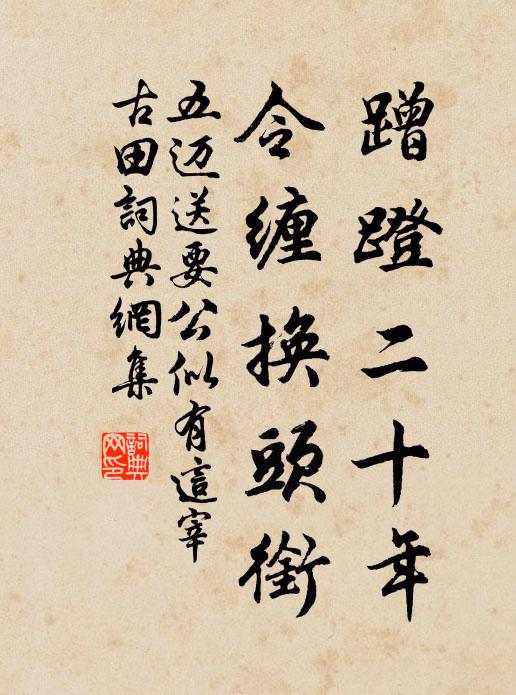 蹭蹬二十年
令纏換頭銜
五迈送要公似有這宰
古田詞典網集
詞典
网印